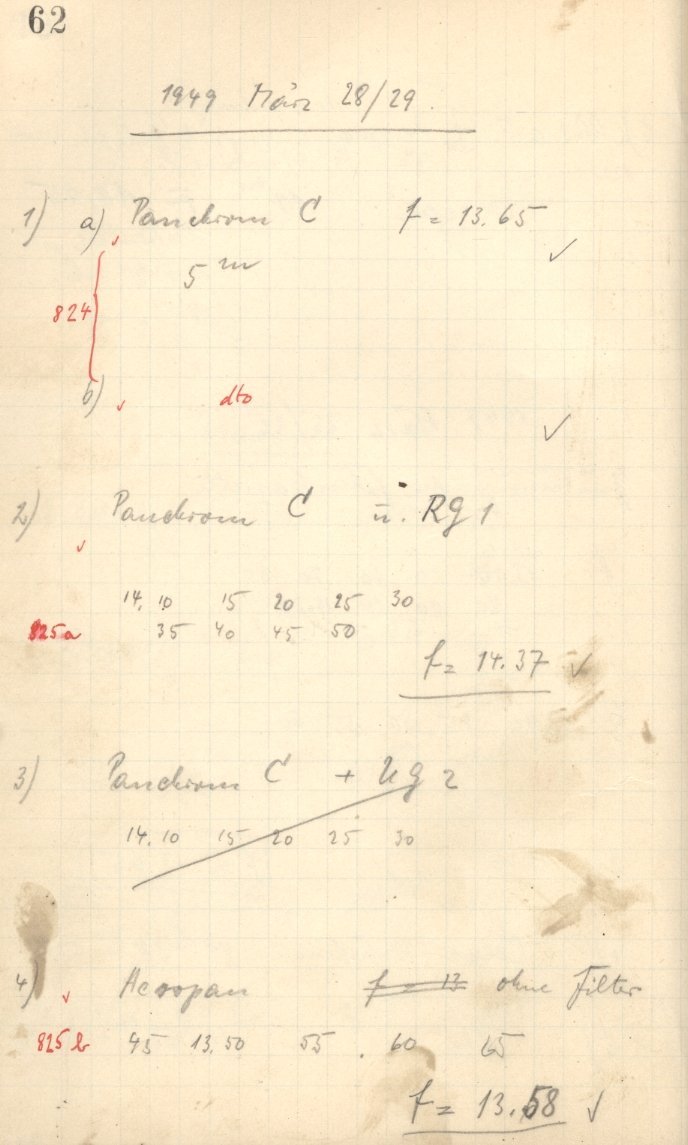 62
1949 März 28/29.
1) a) Panchrom C f = 13.65 ✓
5 m
824
b) dto ✓
2) Panchrom C ü. RG 1
14.10 15 20 25 30
825a 35 40 45 50
f = 14.37 ✓
3) Panchrom C + UG 2
14.10 15 20 25 30
4) Aeropan f = 13 ohne Filter
825 b 45 13.50 55 . 60 65
f = 13.58 ✓